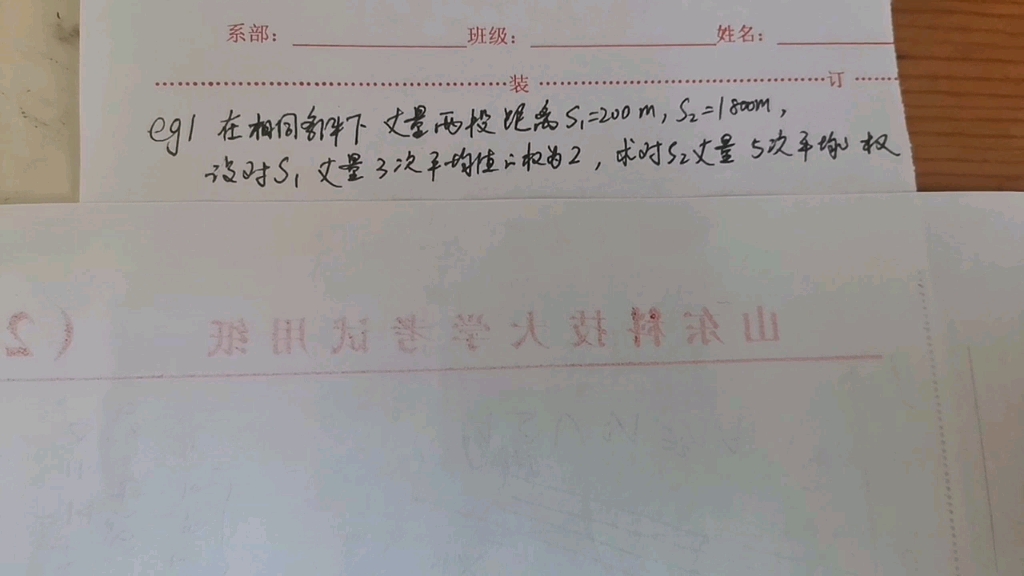 系部: 班级: 姓名:
装 订
eg1 在相同条件下 丈量两段距离 S₁=200m, S₂=1800m,
设对S₁丈量3次平均值的权为2, 求对S₂丈量5次平均的权
山东科技大学考试用纸 (2